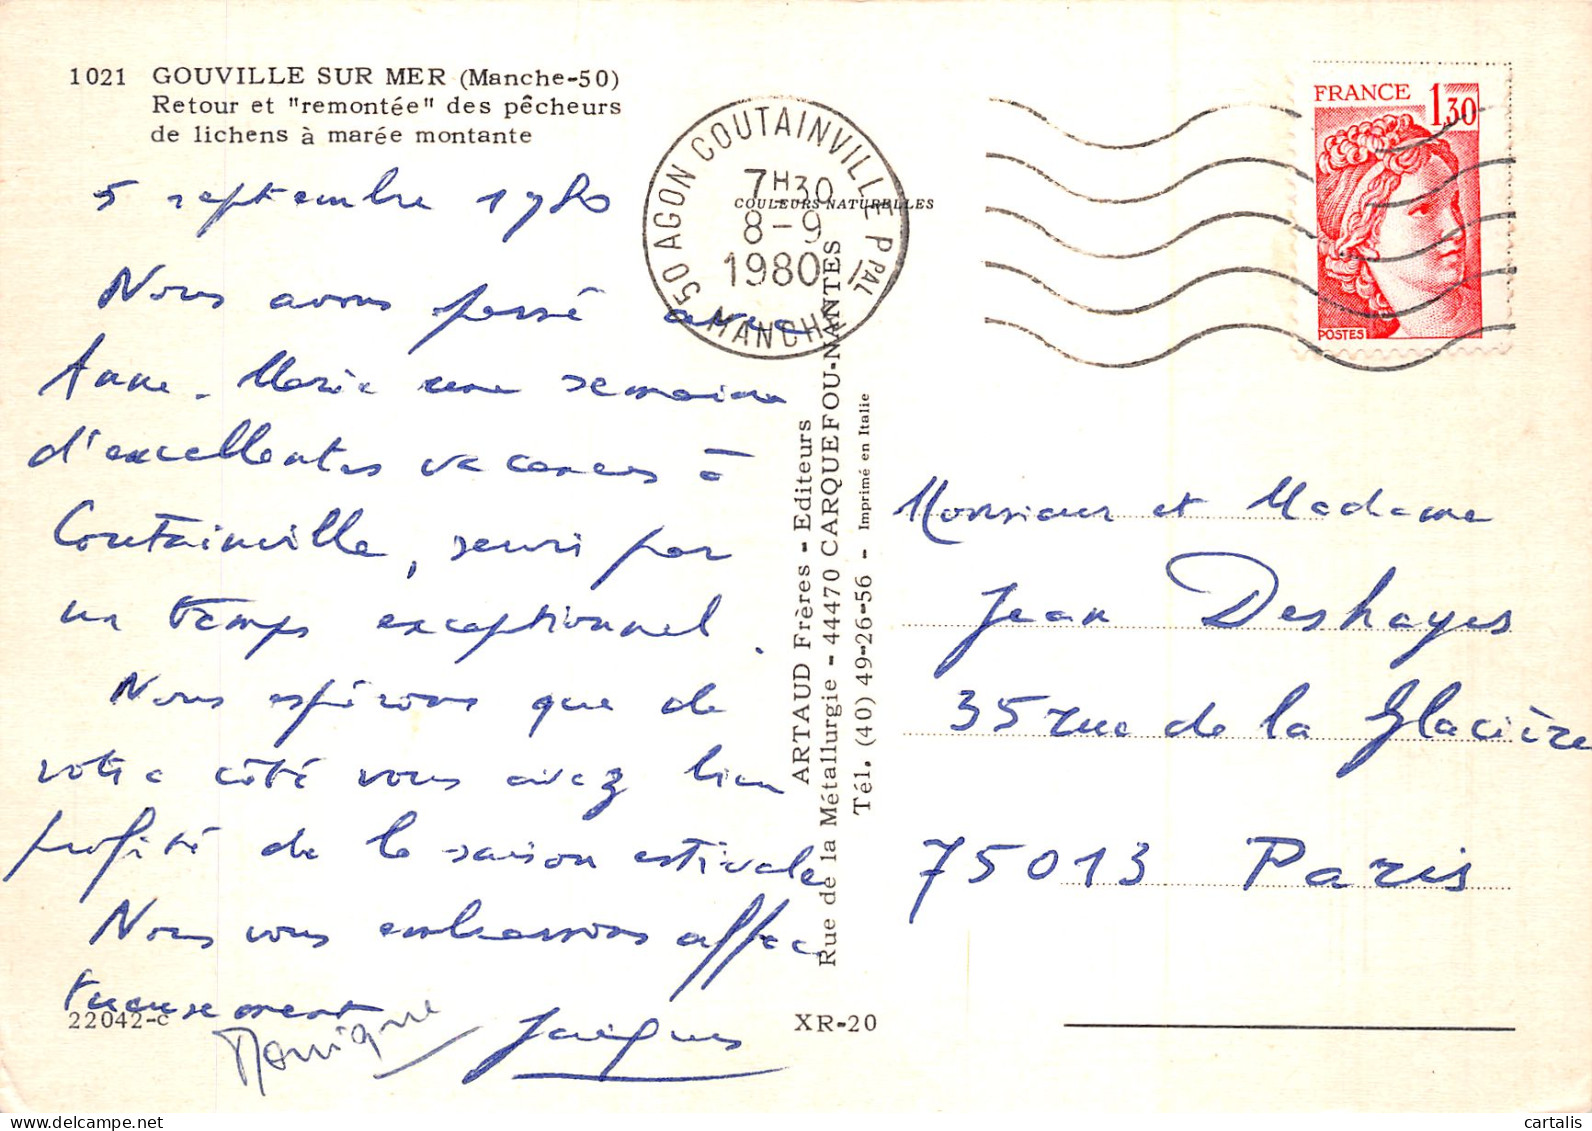 1021 GOUVILLE SUR MER (Manche-50)
Retour et "remontée" des pêcheurs
de lichens à marée montante
5 septembre 1980
Nous avons passé avec
Anne-Marie une semaine
d'excellentes vacances à
Coutainville, servi par
un temps exceptionnel.
Nous espérons que de
votre côté vous avez bien
profité de la saison estivale
Nous vous embrassons affec
tueusement
Monique Jacques
22042-c
50 AGON COUTAINVILLE PPAL
7H30
8-9
1980
MANCHE
COULEURS NATURELLES
ARTAUD Frères - Editeurs
Rue de la Métallurgie - 44470 CARQUEFOU-NANTES
Tél. (40) 49-26-56 - Imprimé en Italie
XR-20
FRANCE 1,30
POSTES
Monsieur et Madame
Jean Deshayes
35 rue de la Glacière
75013 Paris
cartalis